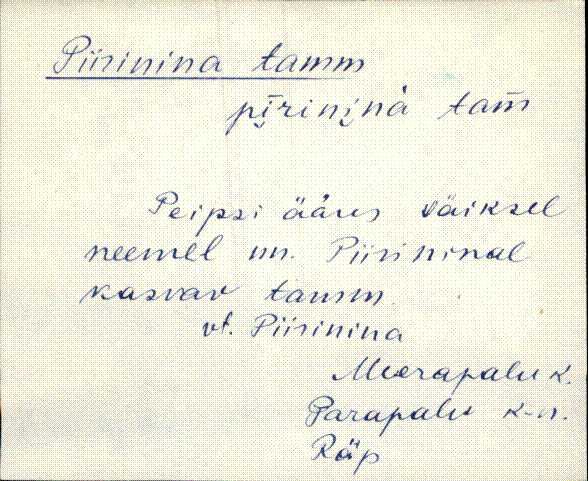 Piirinina tamm
pī̮rini̮nà tam̄
Peipsi ääres väiksel
neemel nn. Piirininal
kasvav tamm.
vt. Piirinina
Meerapalu k.
Parapalu k-n.
Räp